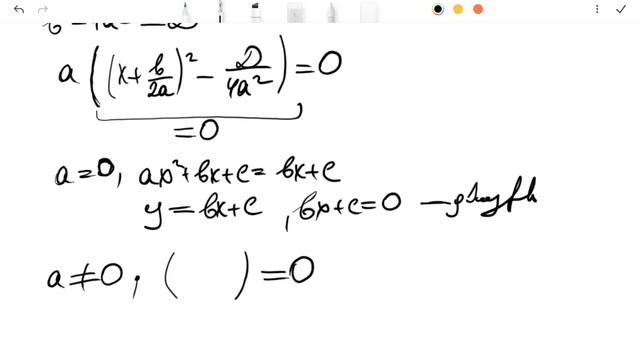 a((x+b/2a)² − D/4a²)=0
=0
a=0, ax²+bx+c=bx+c
y=bx+c, bx+c=0 —
a≠0; ( )=0